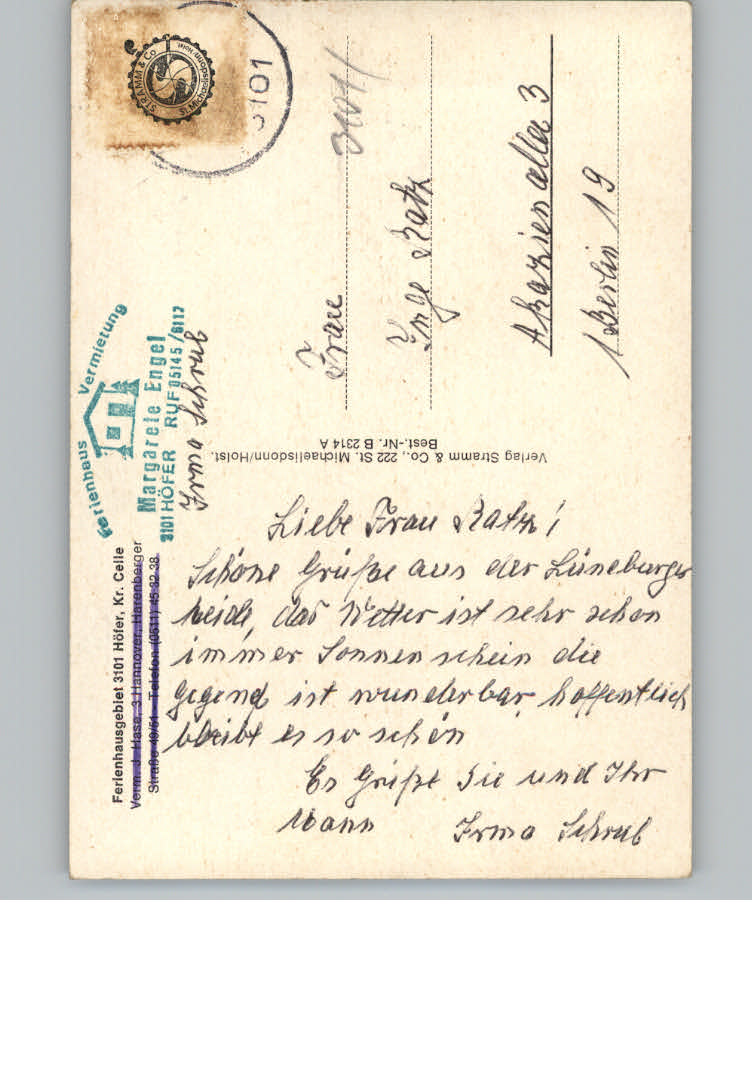 Ferienhausgebiet 3101 Höfer, Kr. Celle
Verm. J. Hase, 3 Hannover, Harenberger
Straße 49/51 Telefon (0511) 45 32 38
Ferienhaus Vermietung
Margarete Engel
3101 HÖFER RUF 05145/8117
Irma Schrub
Liebe Frau Ratz!
Schöne Grüße aus der Lüneburger
heide, das Wetter ist sehr schon
immer Sonnenschein die
gegend ist wunderbar hoffentlich
bleibt es so schön
Es grüßt Sie und Ihr
Mann Irma Schrub
Verlag Stramm & Co., 222 St. Michaelisdonn/Holst.
Best.-Nr. B 2314 A
STRAMM & Co
St. Michaelisdonn Holst.
3101
Frau
Inge Ratz
Akazienallee 3
1 Berlin 19